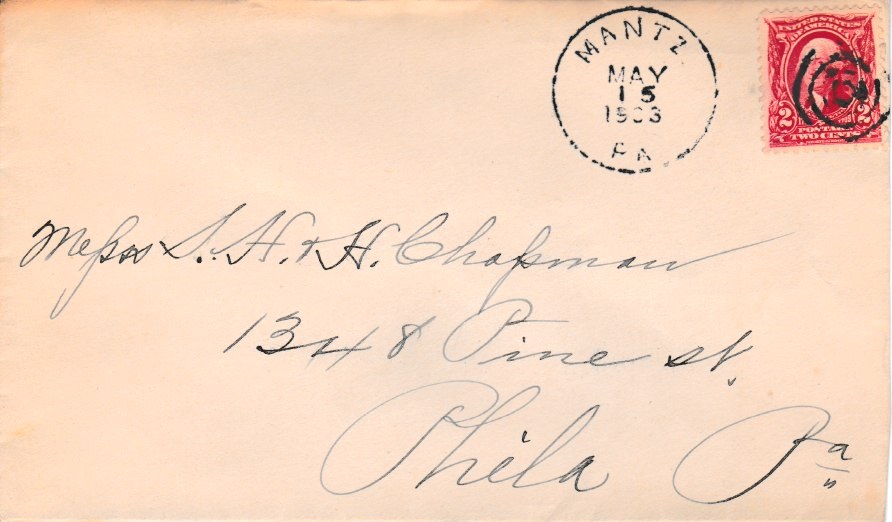 MANTZ
MAY
15
1903
PA
UNITED STATES
OF AMERICA
2 2
POSTAGE
TWO CENTS
Mess S. H. & H. Chapman
1348 Pine st.
Phila Pa